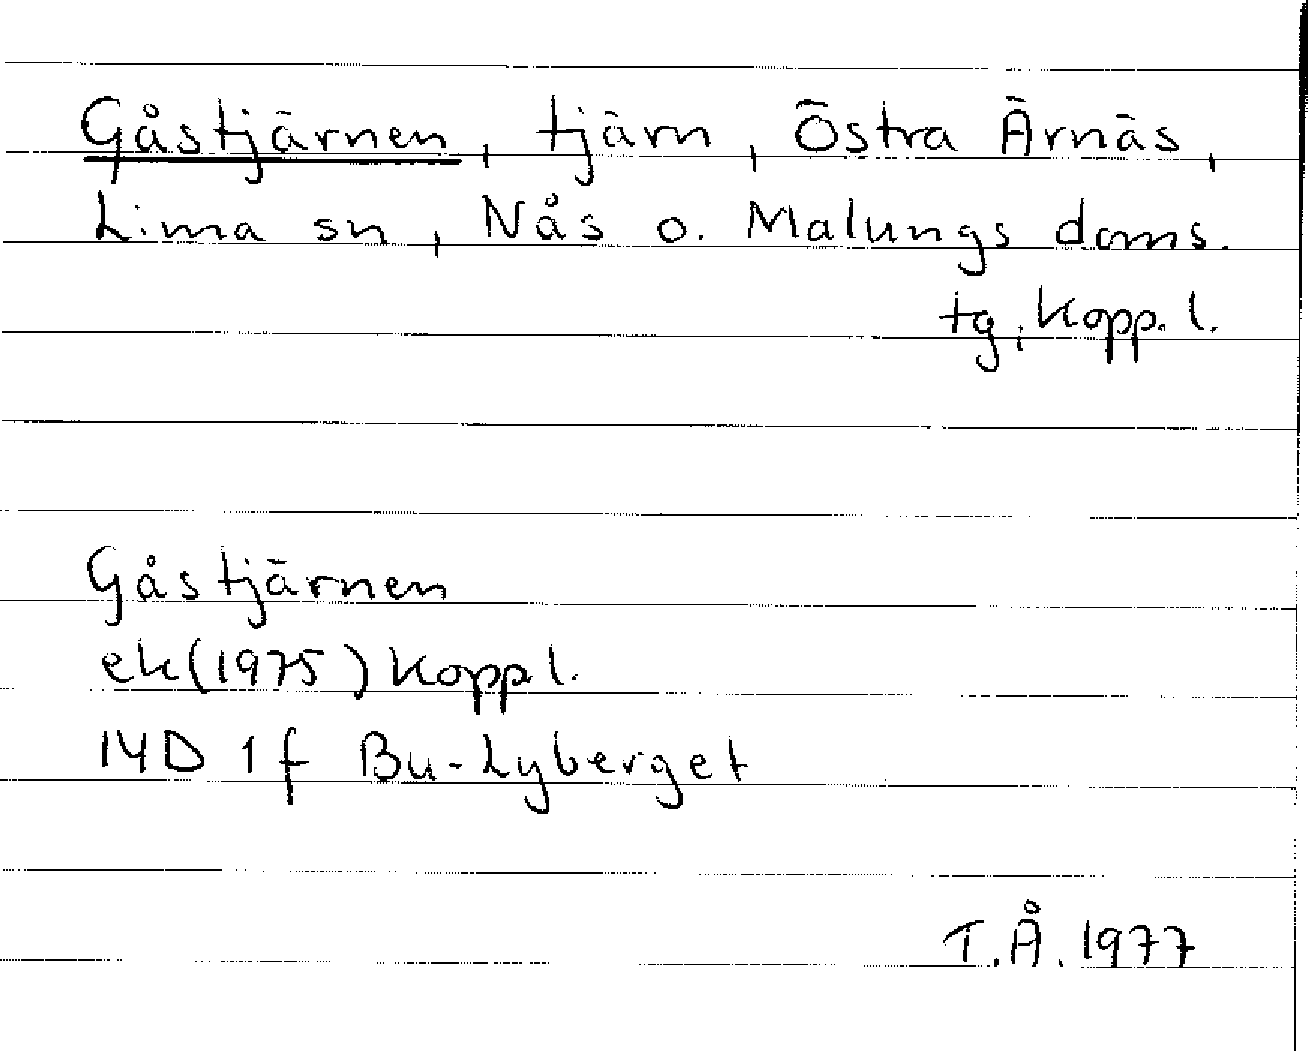 Gåstjärnen, tjärn, Östra Ärnäs,
Lima sn, Nås o. Malungs doms.
tg, Kopp. l.
Gåstjärnen
ek(1975) Kopp l.
14D 1f Bu-Lyberget
T.Å. 1977